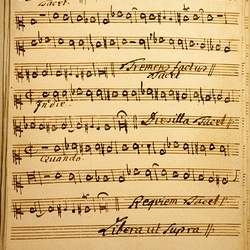 Tacet.
Tremens factus
Tacet
In die
Dies illa Tacet
Quando
Requiem Tacet
Libera ut Supra